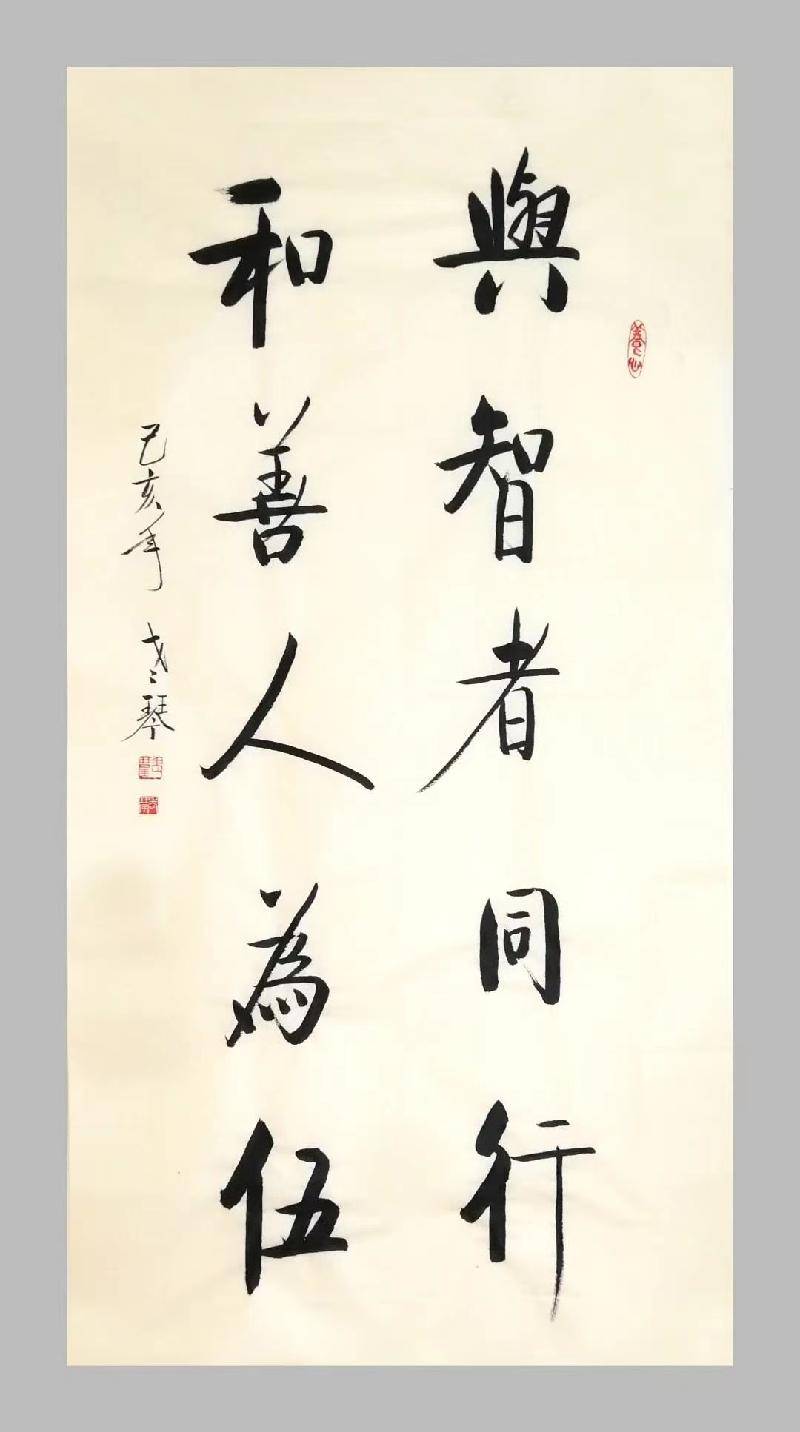 與智者同行
和善人為伍
己亥年
琴
養心